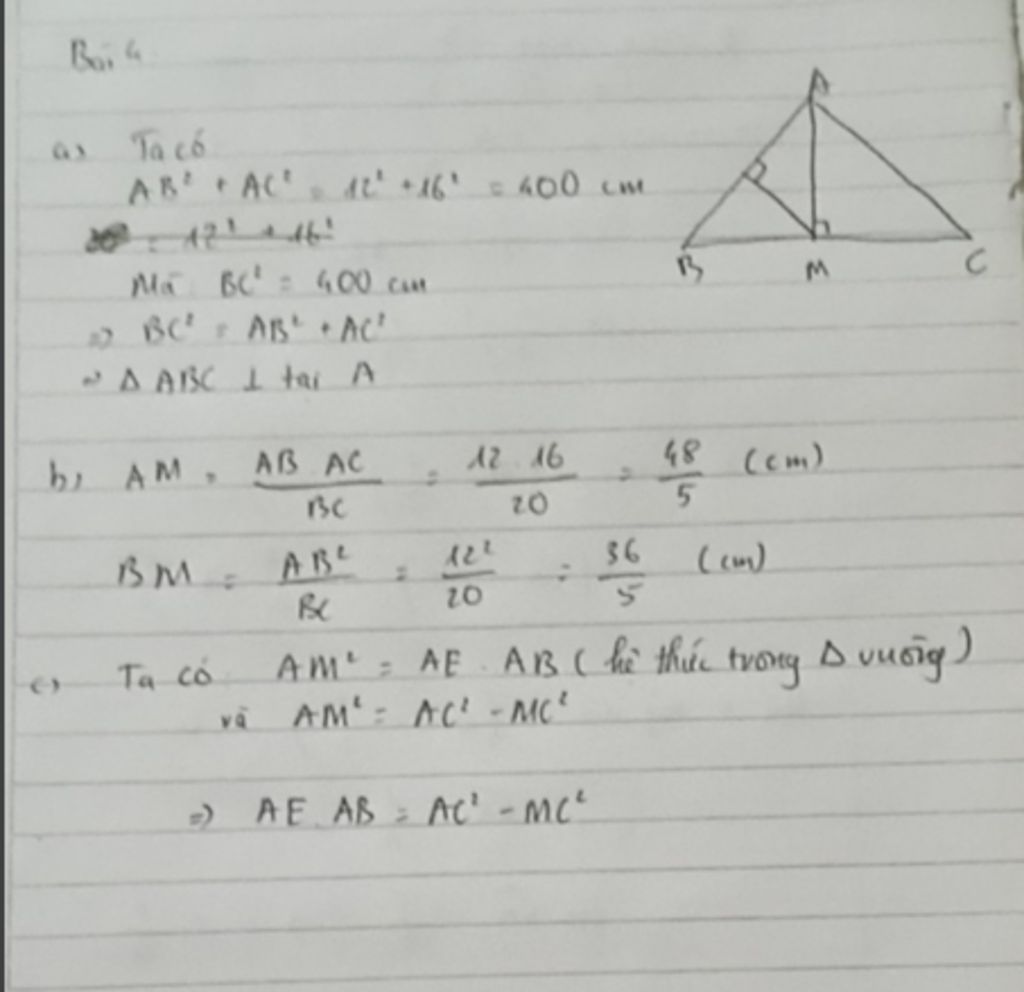 Bài 4
A
B
M
C
a) Ta có
AB² + AC² = 12² + 16² = 400 cm
= 12² + 16²
Mà BC² = 400 cm
=> BC² = AB² + AC²
=> Δ ABC ⊥ tại A
b) AM = AB.AC/BC = 12.16/20 = 48/5 (cm)
BM = AB²/BC = 12²/20 = 36/5 (cm)
c) Ta có AM² = AE.AB (hệ thức trong Δ vuông)
và AM² = AC² - MC²
=> AE.AB = AC² - MC²